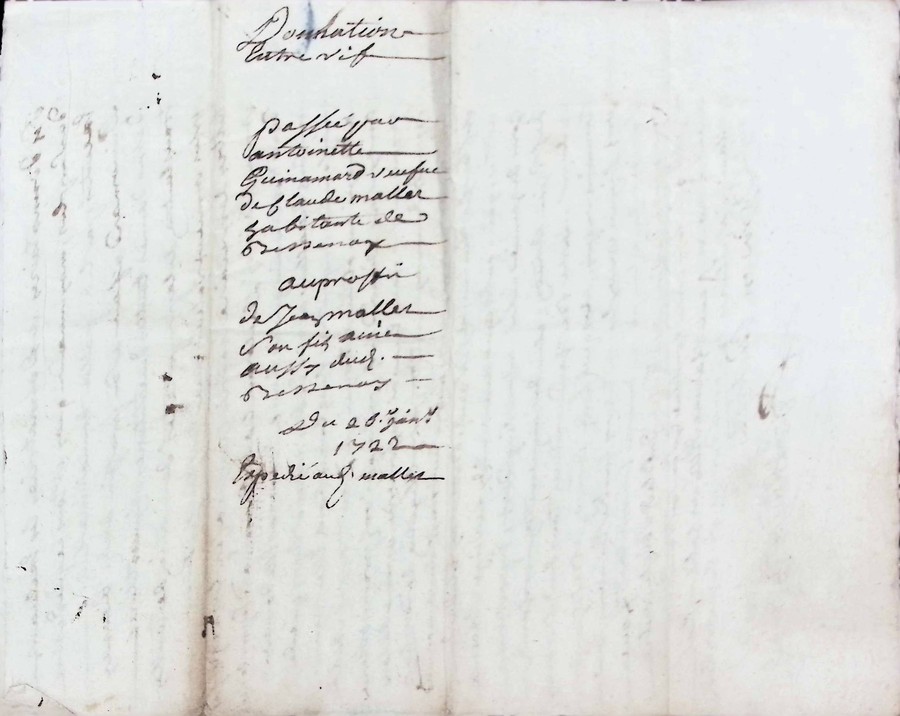 Donnation
Entre vif
passée par
antoinette
Guinamard veufue
de Claude mallet
habitante de
Bessenay
au proffit
de Jean mallet
Son fils ainé
aussy dud.
Bessenay
Du 26.e janv.r
1722
Expedié aud. mallet